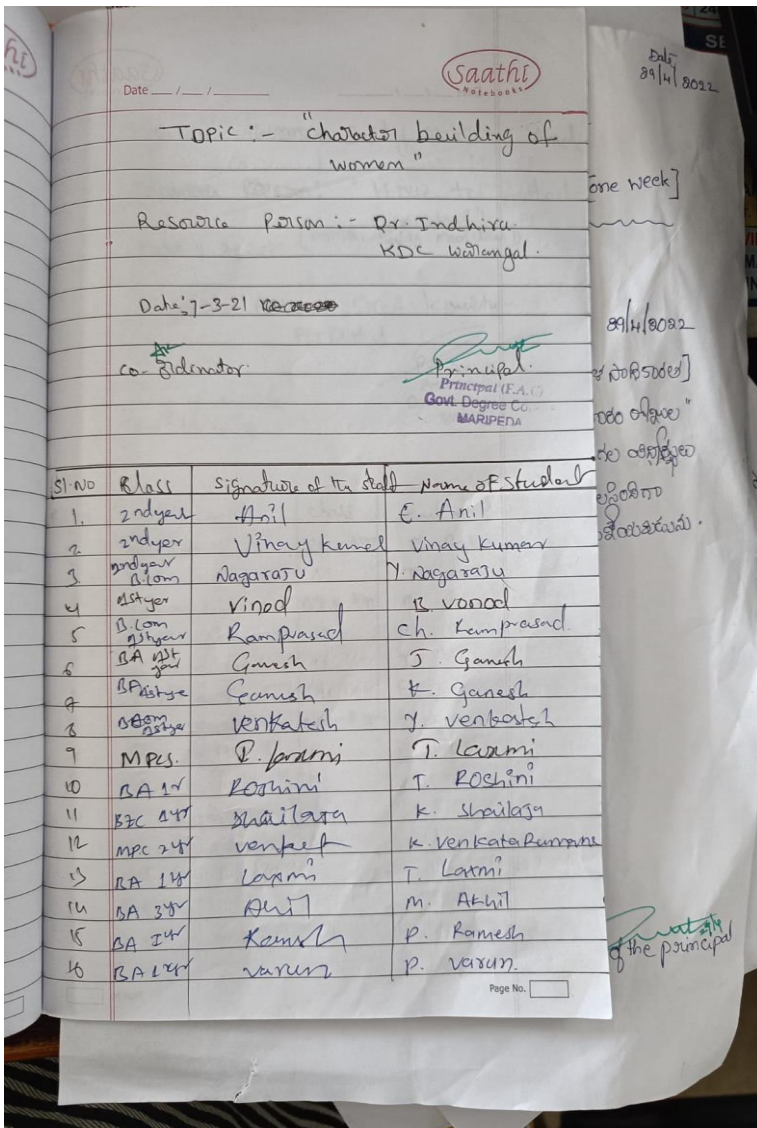 Saathi
Notebooks
Date ___/___/______
TOPic :- "charactor beuilding of
women"
Resource Person :- Dr. Indhira.
KDC Warangal.
Date: 7-3-21
co-ordinator
Principal.
Principal (F.A.C)
Govt. Degree Co
MARIPEDA
Sl.No Class Signature of the staff Name of student
1. 2ndyear Anil E. Anil
2. 2ndyer Vinay kumel Vinay Kumar
3. 2ndyear B.Com Nagaraju Y. Nagaraju
4 1styer vinod B vonod
5 B.Com 1styear Ramprasad ch. Ramprasad.
6 BA 1st year Ganesh J. Ganesh
7 BA 1stye Ganesh K. Ganesh
8 1stye venkatesh Y. venkatesh
9 MPCs. T. Laxmi
10 BA 1yr Roshini T. ROShini
11 BZC 1yr shailaja K. shailaja
12 MPC 2yr venket K. Venkata Ramana
13 BA 1yr Laxmi T. Laxmi
14 BA 3yr Akhil M. Akhil
15 BA I yr Ramesh P. Ramesh
16 BA 1yr varun P. varun.
Page No.
Date
29/4/2022
one week]
29/4/2022
of the principal